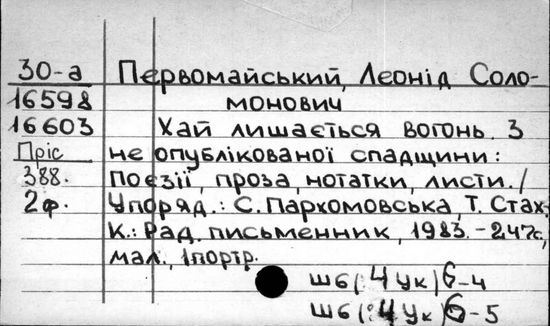 30-а Первомайський, Леонід Соло-
16598 монович
16603 Хай лишається вогонь. З
Пріс не опублікованої спадщини:
388. Поезії, проза, нотатки, листи./
2ф. Упоряд.: С. Пархомовська, Т. Стах,-
К.: Рад. письменник, 1983.-247с.,
мал., 1портр.
Ш6(:4Ук)6-4
Ш6(:4Ук)6-5